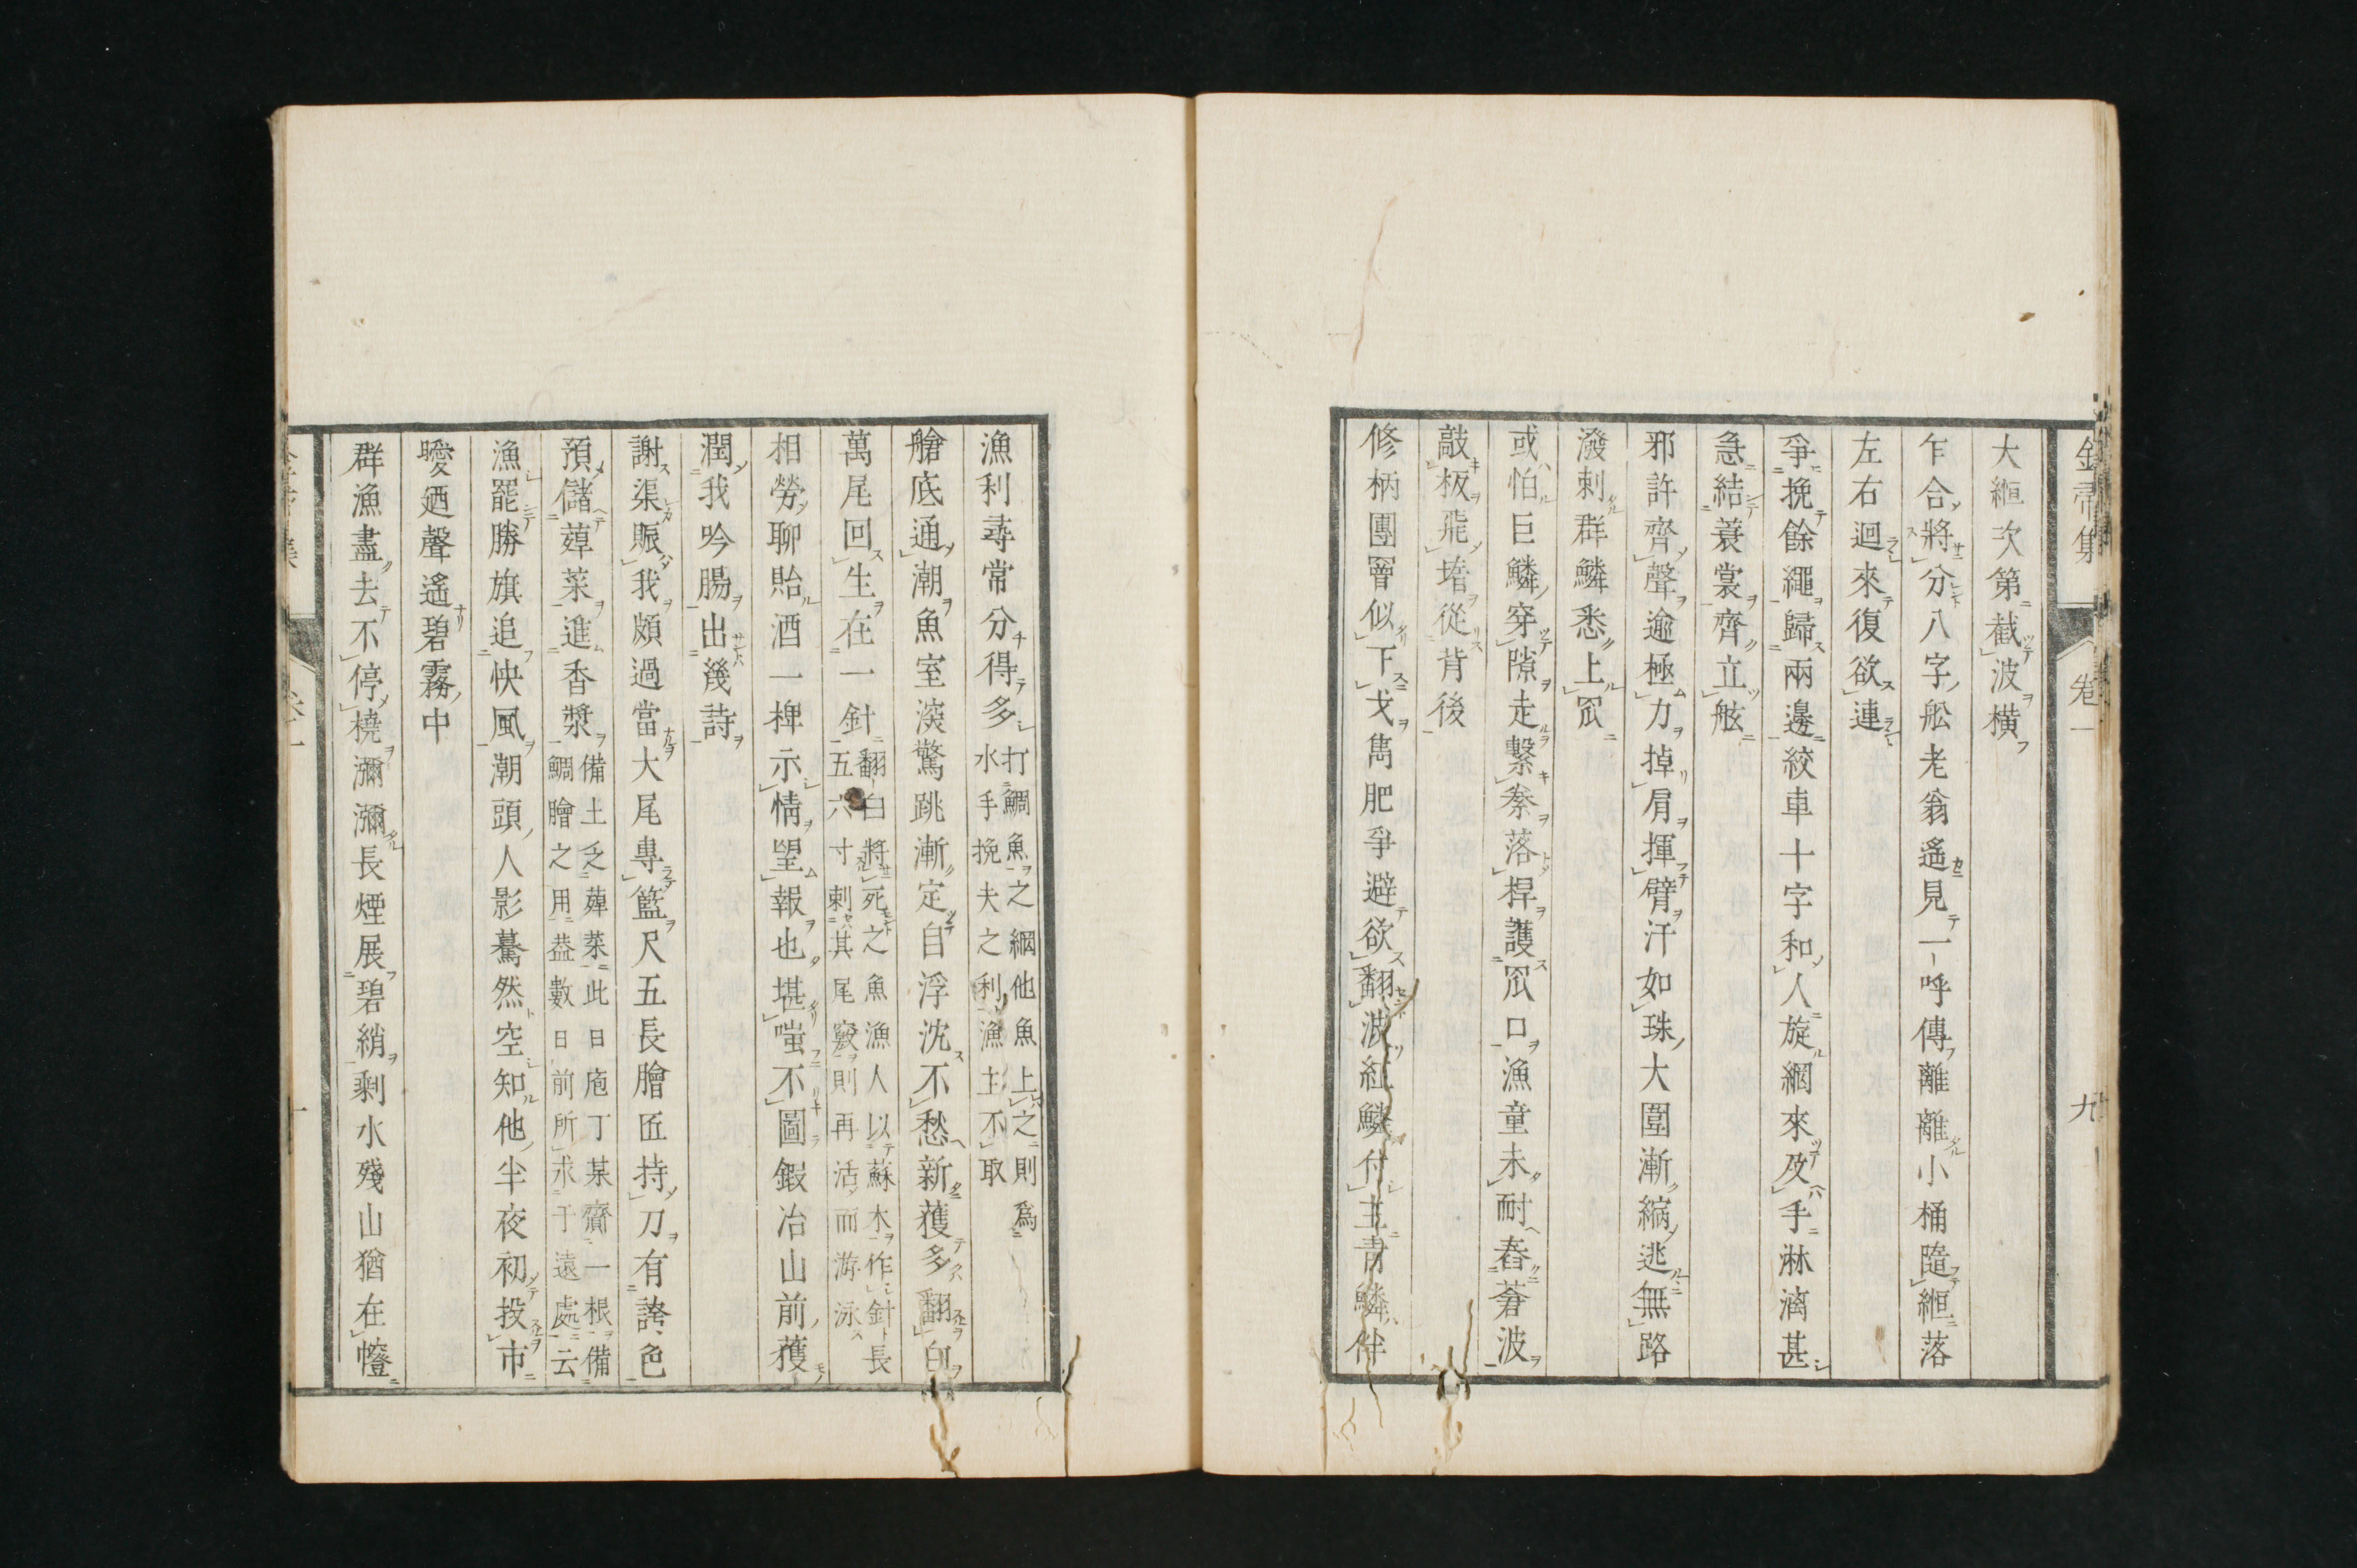 金帚集 卷一 九
大縆次第截波橫
乍合將分八字舩老翁遙見一呼傳離離小桶隨縆落
左右迴來復欲連
爭挽餘繩歸兩邊絞車十字和人旋網來及手淋漓甚
急結蓑裳齊立舷
邪許齊聲逾極力掉肩揮臂汗如珠大圍漸縮逃無路
潑剌群鱗悉上罛
或怕巨鱗穿隙走繫桊落桿護罛口漁童未耐舂蒼波
敲板飛堷從背後
修柄團罾似下戈雋肥爭避欲翻波紅鱗付主青鱗伴
漁利尋常分得多打鯛魚之網他魚上之則爲
水手挽夫之利漁主不取
艙底通潮魚室滾驚跳漸定自浮沈不愁新獲多翻白
萬尾回生在一針翻白將死之魚漁人以蘇木作針長
五六寸刺其尾竅則再活而游泳
相勞聊貽酒一椑示情望報也堪嗤不圖鍜冶山前獲
潤我吟腸出幾詩
謝渠賑我頗過當大尾專籃尺五長膾匠持刀有誇色
預儲蓴菜進香漿備土乏蓴菜此日庖丁某齎一根備
鯛膾之用葢數日前所求于遠處云
漁罷勝旗追快風潮頭人影驀然空知他半夜初投市
曖廼聲遙碧霧中
群漁盡去不停橈瀰瀰長煙展碧綃剩水殘山猶在㡧